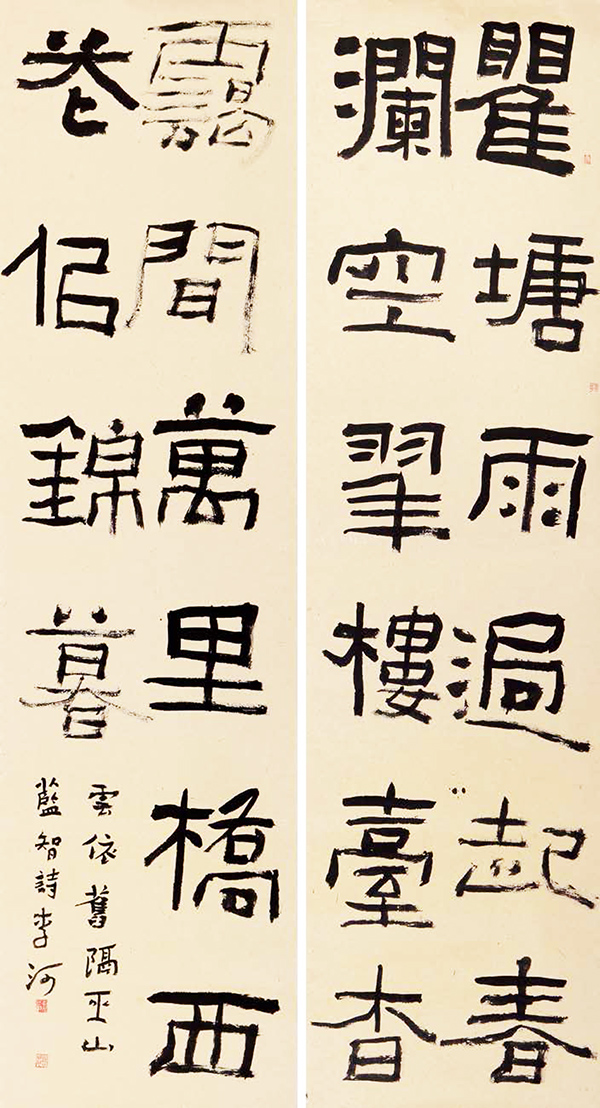 瞿塘雨過起春
瀾空翠樓臺杳
靄間萬里橋西
花似錦暮
雲依舊隔巫山
藍智詩李河